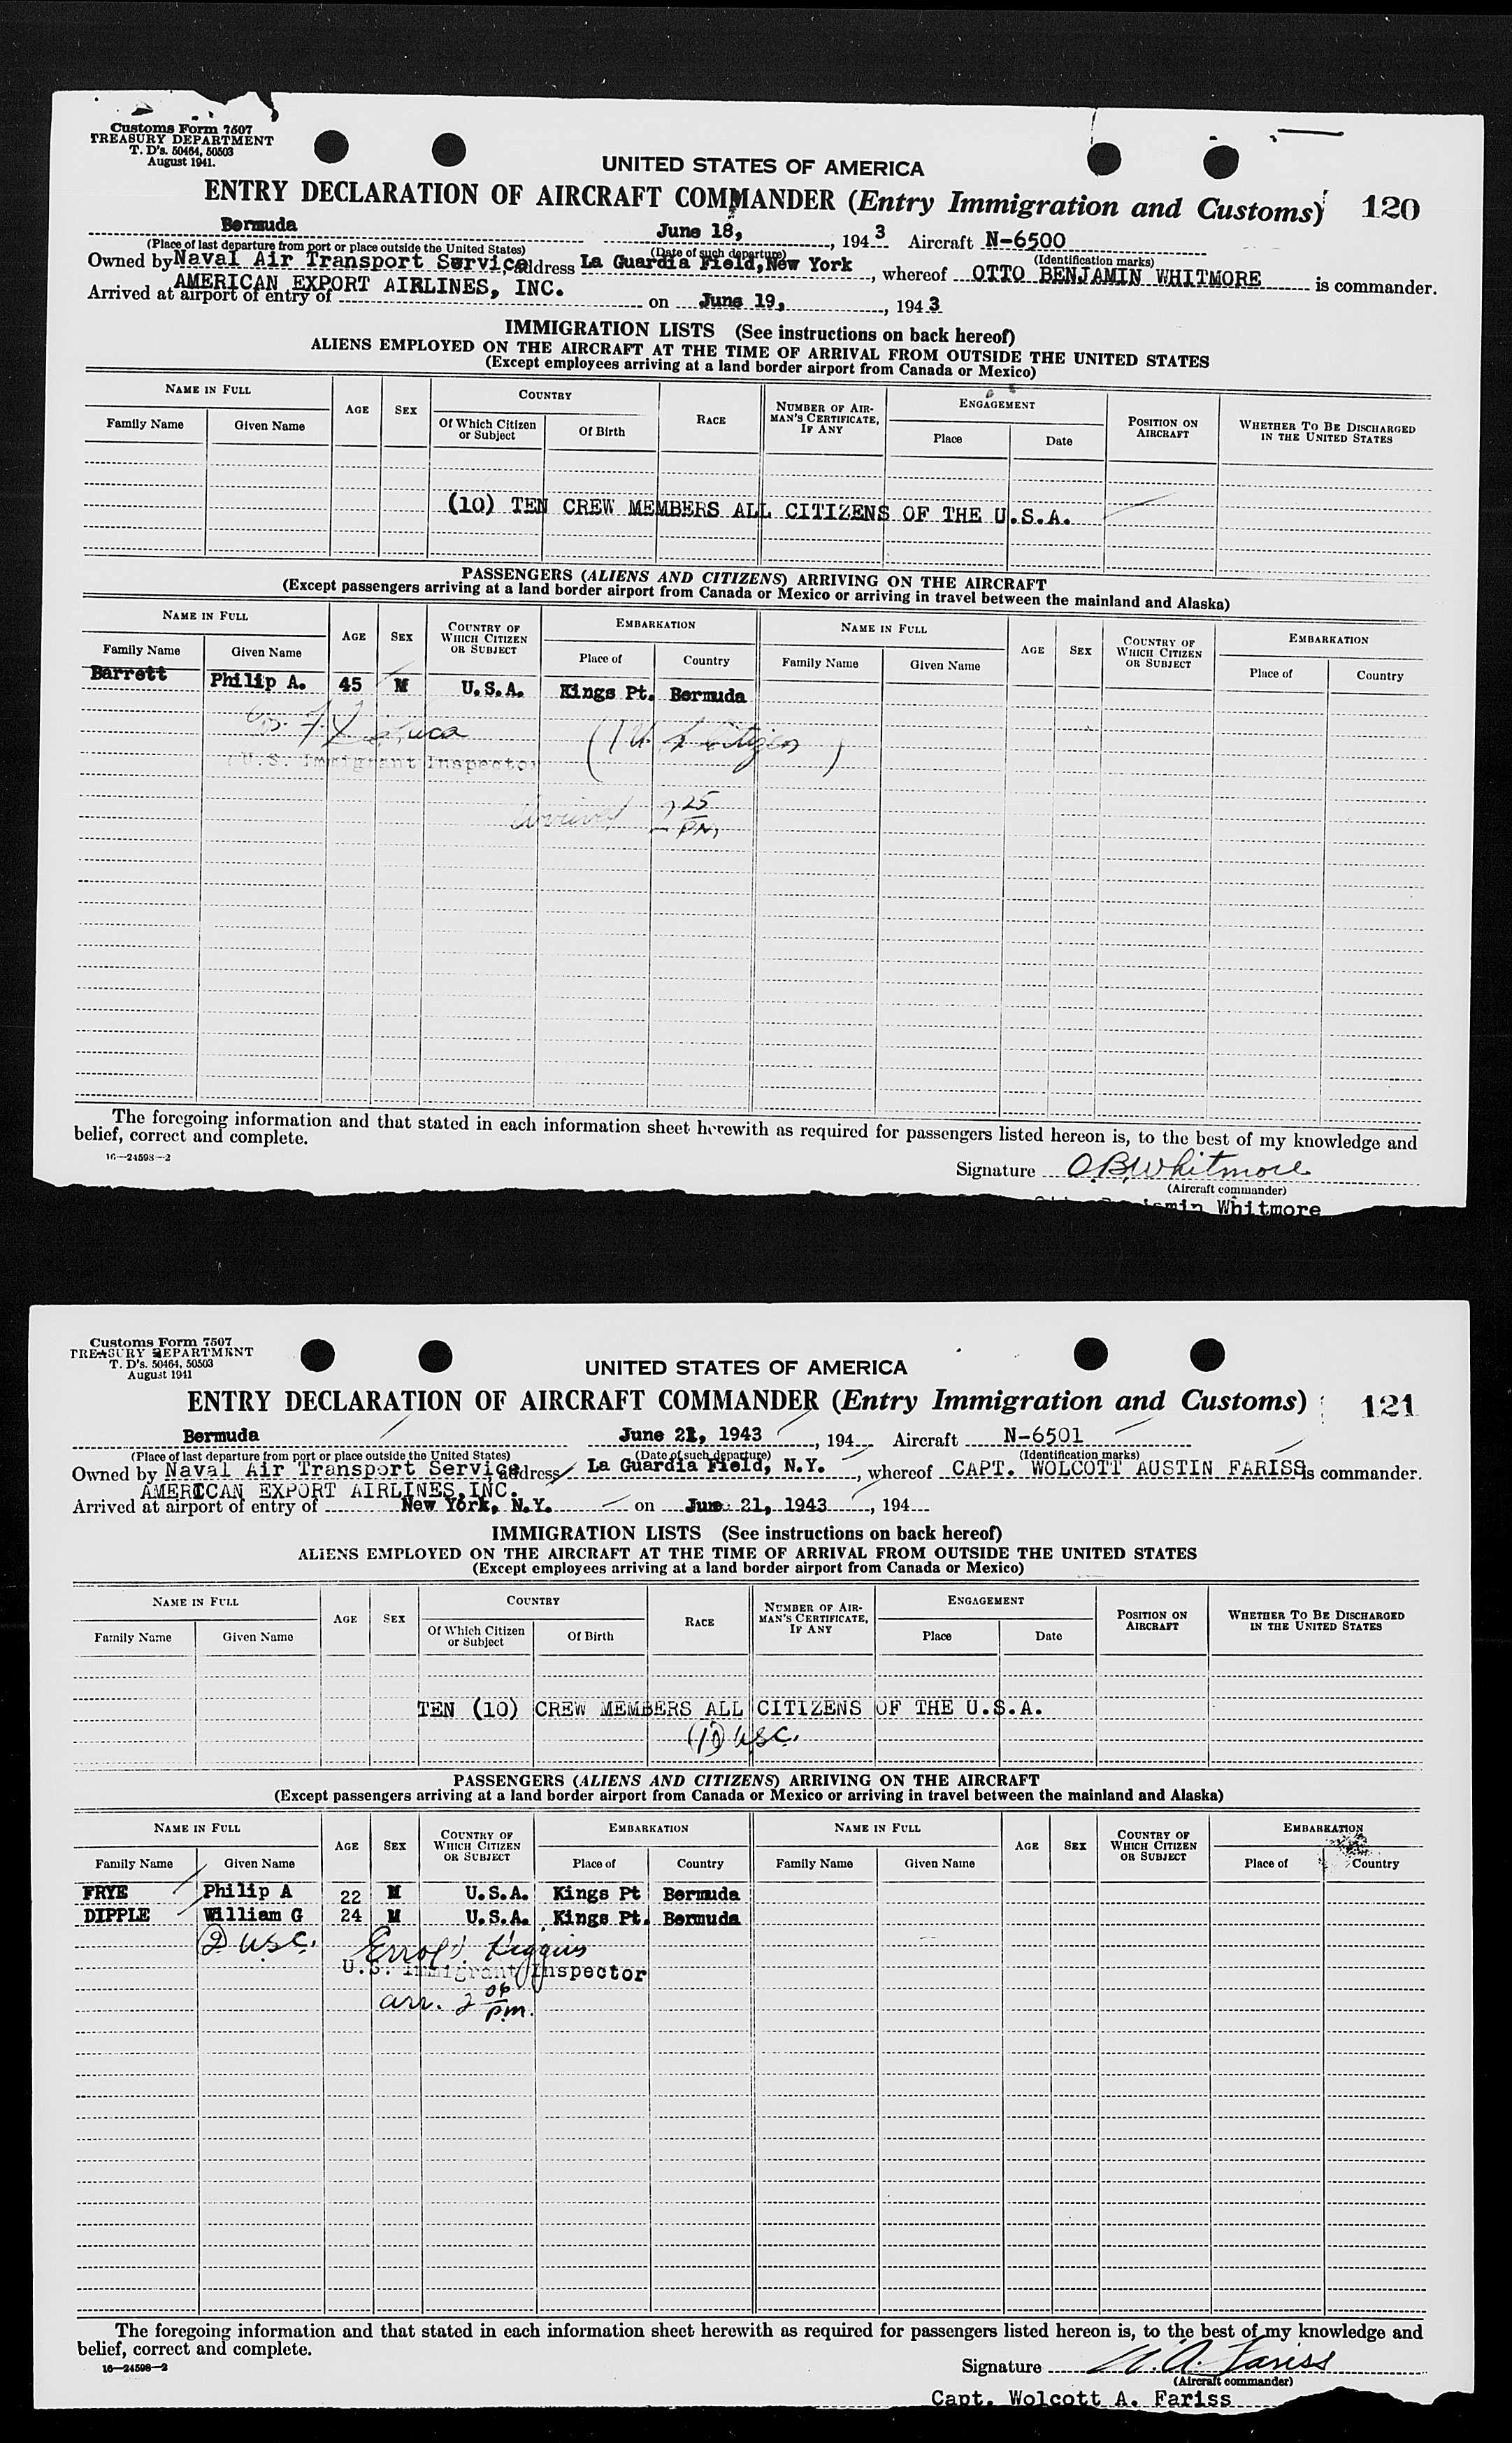 Customs Form 7507
TREASURY DEPARTMENT
T. D's. 50464, 50503
August 1941.
UNITED STATES OF AMERICA
ENTRY DECLARATION OF AIRCRAFT COMMANDER (Entry Immigration and Customs) 120
Bermuda June 18, 1943 Aircraft N-6500
(Place of last departure from port or place outside the United States) (Date of such departure) (Identification marks)
Owned by Naval Air Transport Service address La Guardia Field, New York, whereof OTTO BENJAMIN WHITMORE is commander.
AMERICAN EXPORT AIRLINES, INC.
Arrived at airport of entry of on June 19, 1943
IMMIGRATION LISTS (See instructions on back hereof)
ALIENS EMPLOYED ON THE AIRCRAFT AT THE TIME OF ARRIVAL FROM OUTSIDE THE UNITED STATES
(Except employees arriving at a land border airport from Canada or Mexico)
NAME IN FULL AGE SEX COUNTRY RACE NUMBER OF AIRMAN'S CERTIFICATE, IF ANY ENGAGEMENT POSITION ON AIRCRAFT WHETHER TO BE DISCHARGED IN THE UNITED STATES
Family Name Given Name Of Which Citizen or Subject Of Birth Place Date
(10) TEN CREW MEMBERS ALL CITIZENS OF THE U.S.A.
PASSENGERS (ALIENS AND CITIZENS) ARRIVING ON THE AIRCRAFT
(Except passengers arriving at a land border airport from Canada or Mexico or arriving in travel between the mainland and Alaska)
NAME IN FULL AGE SEX COUNTRY OF WHICH CITIZEN OR SUBJECT EMBARKATION NAME IN FULL AGE SEX COUNTRY OF WHICH CITIZEN OR SUBJECT EMBARKATION
Family Name Given Name Place of Country Family Name Given Name Place of Country
Barrett Philip A. 45 M U.S.A. Kings Pt. Bermuda
(1 U.S. Citizen)
U.S. Immigrant Inspector
Arrived 7 25 PM
The foregoing information and that stated in each information sheet herewith as required for passengers listed hereon is, to the best of my knowledge and
belief, correct and complete.
16—24598—2
Signature O.B. Whitmore
(Aircraft commander)
Benjamin Whitmore
Customs Form 7507
TREASURY DEPARTMENT
T. D's. 50464, 50503
August 1941
UNITED STATES OF AMERICA
ENTRY DECLARATION OF AIRCRAFT COMMANDER (Entry Immigration and Customs) 121
Bermuda June 21, 1943, 194 Aircraft N-6501
(Place of last departure from port or place outside the United States) (Date of such departure) (Identification marks)
Owned by Naval Air Transport Service address La Guardia Field, N.Y., whereof CAPT. WOLCOTT AUSTIN FARISS is commander.
AMERICAN EXPORT AIRLINES, INC.
Arrived at airport of entry of New York, N.Y. on June 21, 1943, 194
IMMIGRATION LISTS (See instructions on back hereof)
ALIENS EMPLOYED ON THE AIRCRAFT AT THE TIME OF ARRIVAL FROM OUTSIDE THE UNITED STATES
(Except employees arriving at a land border airport from Canada or Mexico)
NAME IN FULL AGE SEX COUNTRY RACE NUMBER OF AIRMAN'S CERTIFICATE, IF ANY ENGAGEMENT POSITION ON AIRCRAFT WHETHER TO BE DISCHARGED IN THE UNITED STATES
Family Name Given Name Of Which Citizen or Subject Of Birth Place Date
TEN (10) CREW MEMBERS ALL CITIZENS OF THE U.S.A.
(10) USC.
PASSENGERS (ALIENS AND CITIZENS) ARRIVING ON THE AIRCRAFT
(Except passengers arriving at a land border airport from Canada or Mexico or arriving in travel between the mainland and Alaska)
NAME IN FULL AGE SEX COUNTRY OF WHICH CITIZEN OR SUBJECT EMBARKATION NAME IN FULL AGE SEX COUNTRY OF WHICH CITIZEN OR SUBJECT EMBARKATION
Family Name Given Name Place of Country Family Name Given Name Place of Country
FRYE Philip A 22 M U.S.A. Kings Pt Bermuda
DIPPLE William G 24 M U.S.A. Kings Pt. Bermuda
2 USC. Errol Higgins
U.S. Immigrant Inspector
arr. 2 06 pm.
The foregoing information and that stated in each information sheet herewith as required for passengers listed hereon is, to the best of my knowledge and
belief, correct and complete.
16—24598—2
Signature W.A. Fariss
(Aircraft commander)
Capt. Wolcott A. Fariss